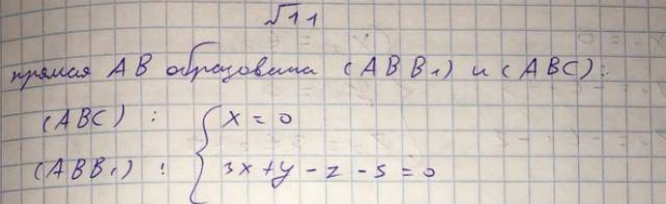 √11
прямая AB образована (ABB₁) и (ABC):
(ABC) : { x = 0
(ABB₁) : { 3x + y - z - 5 = 0